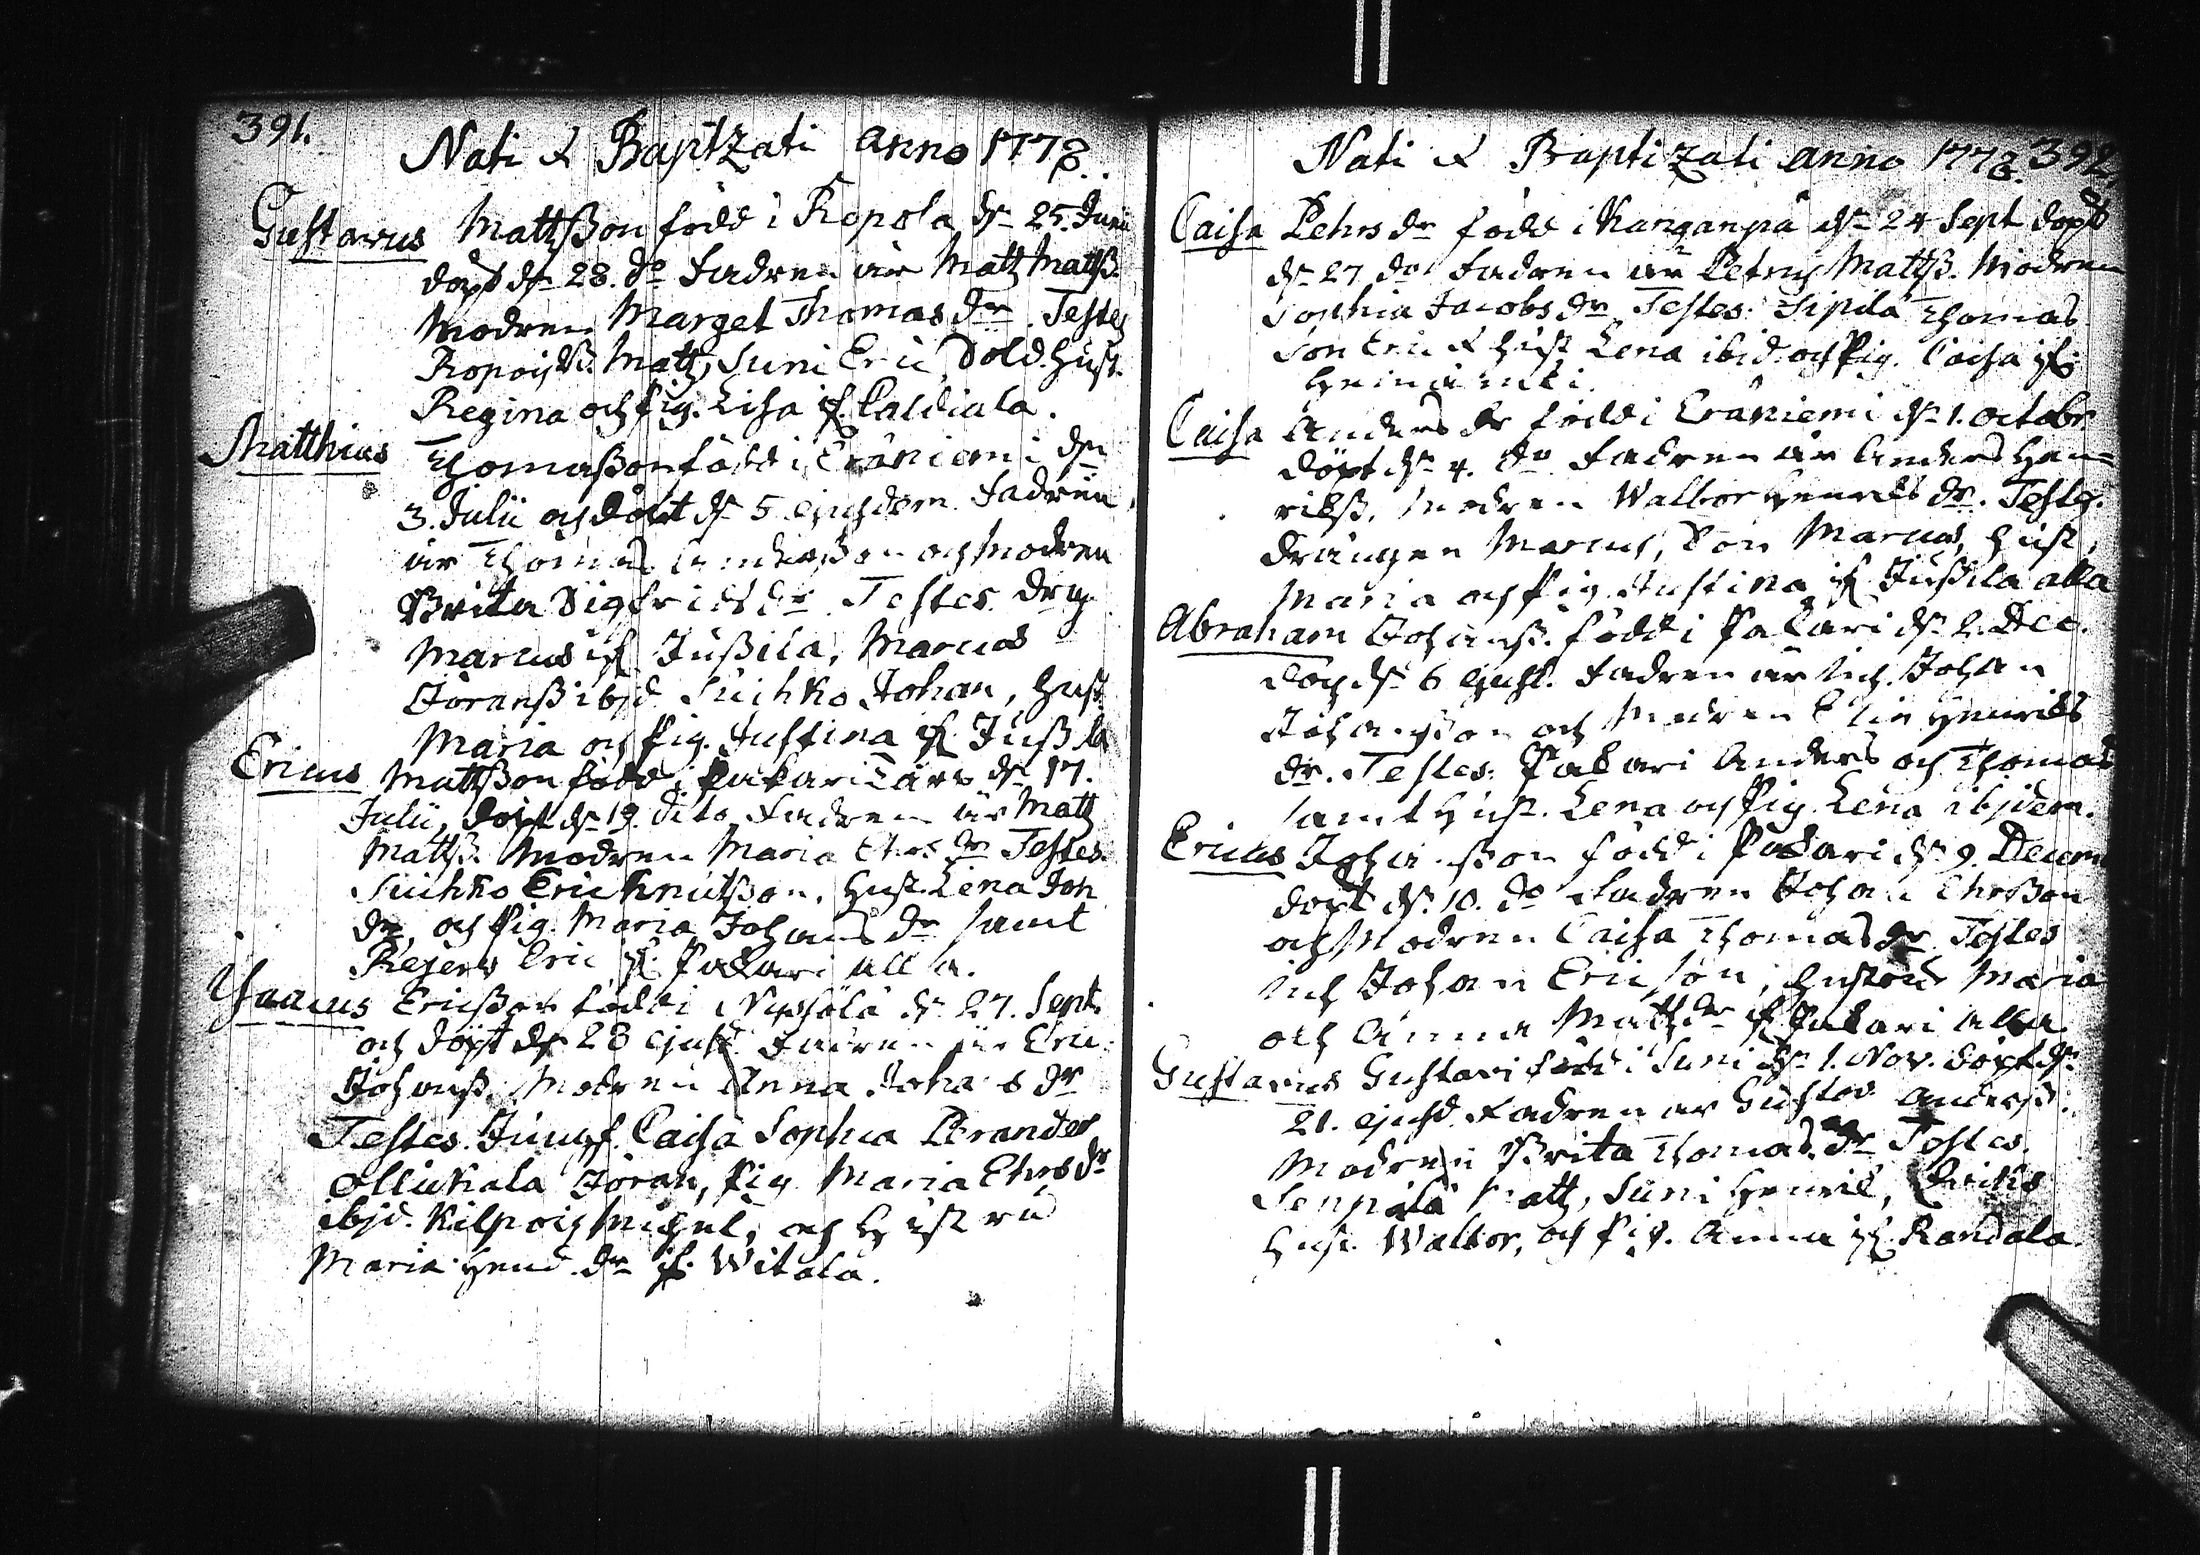 391.
Nati & Baptzati anno 1778.
Gustavus Mattsson född i Ropola dn 25. Junii
döpt dn 28. do Fadren är Matz Matss.
Modren Marget Thomas dr. Testes
Matz, Suni Eric, Sold. Hust.
Regina och Pig. Lisa if. Caldiala.
Matthias Thomasson född i Eräniemi dn
3. Julii och döpt dn 5 ejusdem. Fadren
är Thomas Andersson och Modren
Brita Sigfrids dr. Testes. Drg.
Marcus if. Jussila, Marcus
Göranss ibid. Suihko Johan, Hust.
Maria och Pig. Justina if. Jussila
Ericus Mattsson född i Pakari dn 17.
Julii, döpt dn 19. dito. Fadren är Matz
Matss. Modren Maria Ehrs dr Testes.
Suihko Eric Knutsson, Hust. Lena Joh
dr, och Pig. Maria Johans dr samt
Rejers Eric if. Pakari alla.
Isaacus Ericsson född i dn 27. Sept.
och döpt dn 28 ejusd. Fadren är Eric
Johanss. Modren Anna Johans dr
Testes. Jungf. Caisa Sophia Brander
Ollickala Jöran, Pig Maria Ehrs dr
ibid. Kilpois Michel, och Hustru
Maria Hend. dr if. Witala.
Nati & Baptizati anno 1778. 392.
Caisa Pehrs dr född i Kanganpä dn 24 Sept döpt
dn 27 do Fadren är Petrus Matss. Modren
Sophia Jacobs dr Testes: Sipilä Thomas
Son Eric & Hust Lena ibid. och Pig. Caisa if.
Caisa Anders dr född i Eräniemi dn 1. octobr
döpt dn 4. do Fadren är Anders Hen-
rikss. Modren Walbor Henriks dr. Testes.
drängen Marcus, Son Marcus, Hust,
Maria och Pig Justina if Jussila alla
Abraham Johanss. född i Pakari dn 2. Dec.
dn 6 ejusd. Fadren är Johan
Johansson och Modren Henriks
dr. Testes: Pakari Anders och Thomas
samt Hust. Lena och Pig Lena ibidem.
Ericus Johansson född i Pakari dn 9. Decem
döpt dn 10. do Fadren Johan Ehrsson
och Modren Caisa Thomas dr Testes
Johan Ericson, Hustru Maria
och Anna Matz dr if Pakari alla.
Gustavus Gustavi född i Suni dn 1. Nov. döpt dn
21. ejusd. Fadren är Gustav Anderss.
Modren Brita Thomas dr Testes.
Seppälä Matz, Suni Henric,
Hust. Walbor, och Pig. Anna if. Randala